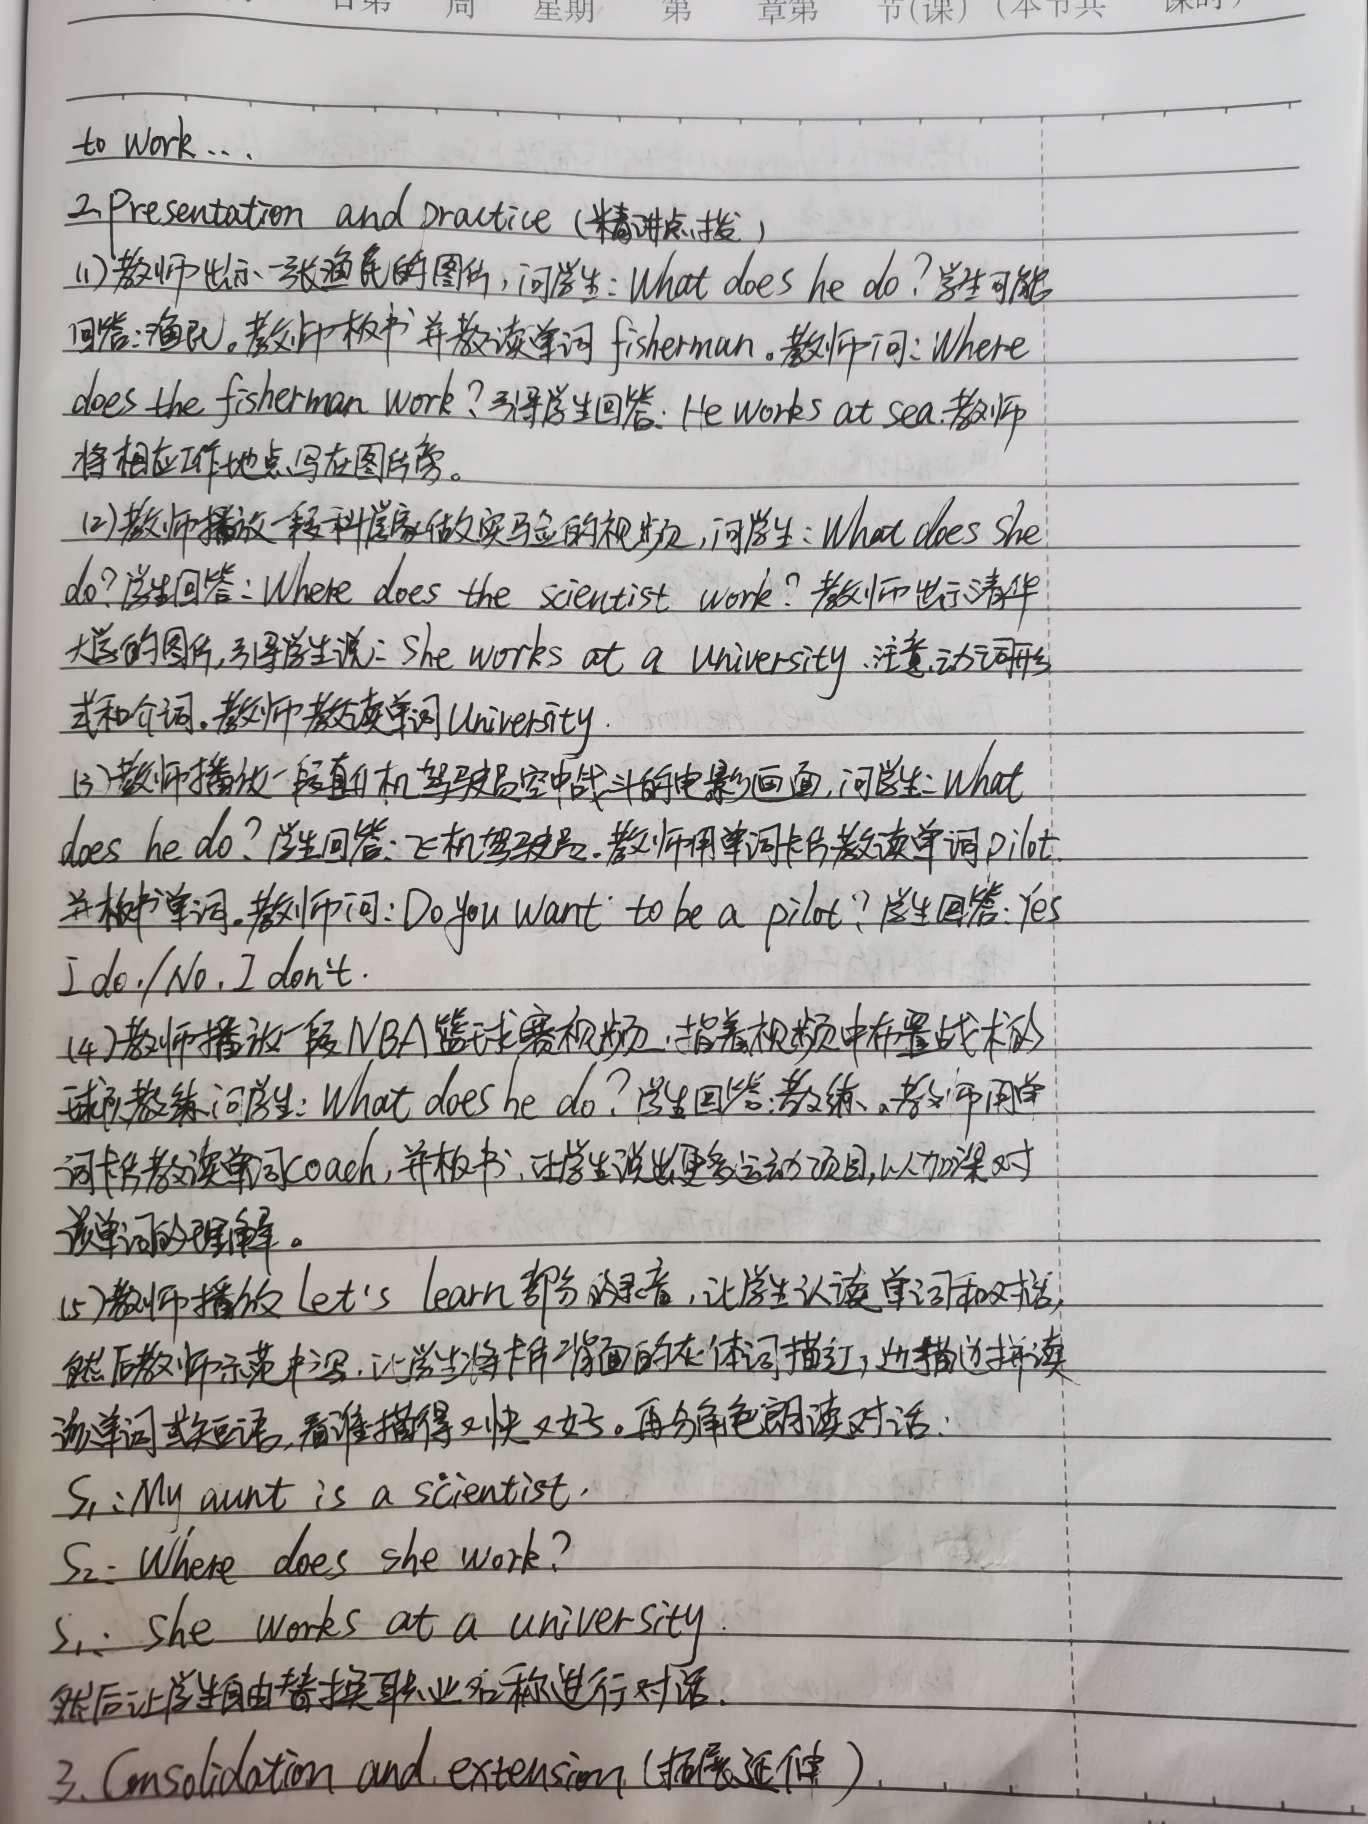 日第 周 星期 第 章第 节(课) (本节共 课时)
to work...
2. Presentation and practice (精讲点拨)
(1)教师出示一张渔民的图片,问学生: What does he do? 学生可能
回答:渔民。教师板书并教读单词 fisherman。教师问: Where
does the fisherman work? 引导学生回答: He works at sea. 教师
将相应工作地点写在图片旁。
(2)教师播放一段科学家做实验的视频,问学生: What does she
do? 学生回答: Where does the scientist work? 教师出示清华
大学的图片,引导学生说: She works at a university. 注意动词形
式和介词。教师教读单词 University.
(3)教师播放一段直升机驾驶员空中战斗的电影画面,问学生: What
does he do? 学生回答: 飞机驾驶员。教师用单词卡片教读单词 pilot.
并板书单词。教师问: Do you want to be a pilot? 学生回答: Yes
I do./No. I don't.
(4)教师播放一段NBA篮球赛视频,指着视频中布置战术的
球队教练问学生: What does he do? 学生回答:教练。教师用单
词卡片教读单词 coach, 并板书,让学生说出更多运动项目,以加深对
该单词的理解。
(5)教师播放 Let's learn 部分的录音,让学生认读单词和对话,
然后教师示范书写,让学生将卡片背面的灰体词描红,边描边拼读
该单词或短语,看谁描得又快又好。再分角色朗读对话:
S1: My aunt is a scientist.
S2: Where does she work?
S1: She works at a university.
然后让学生自由替换职业名称进行对话.
3. Consolidation and extension (拓展延伸)